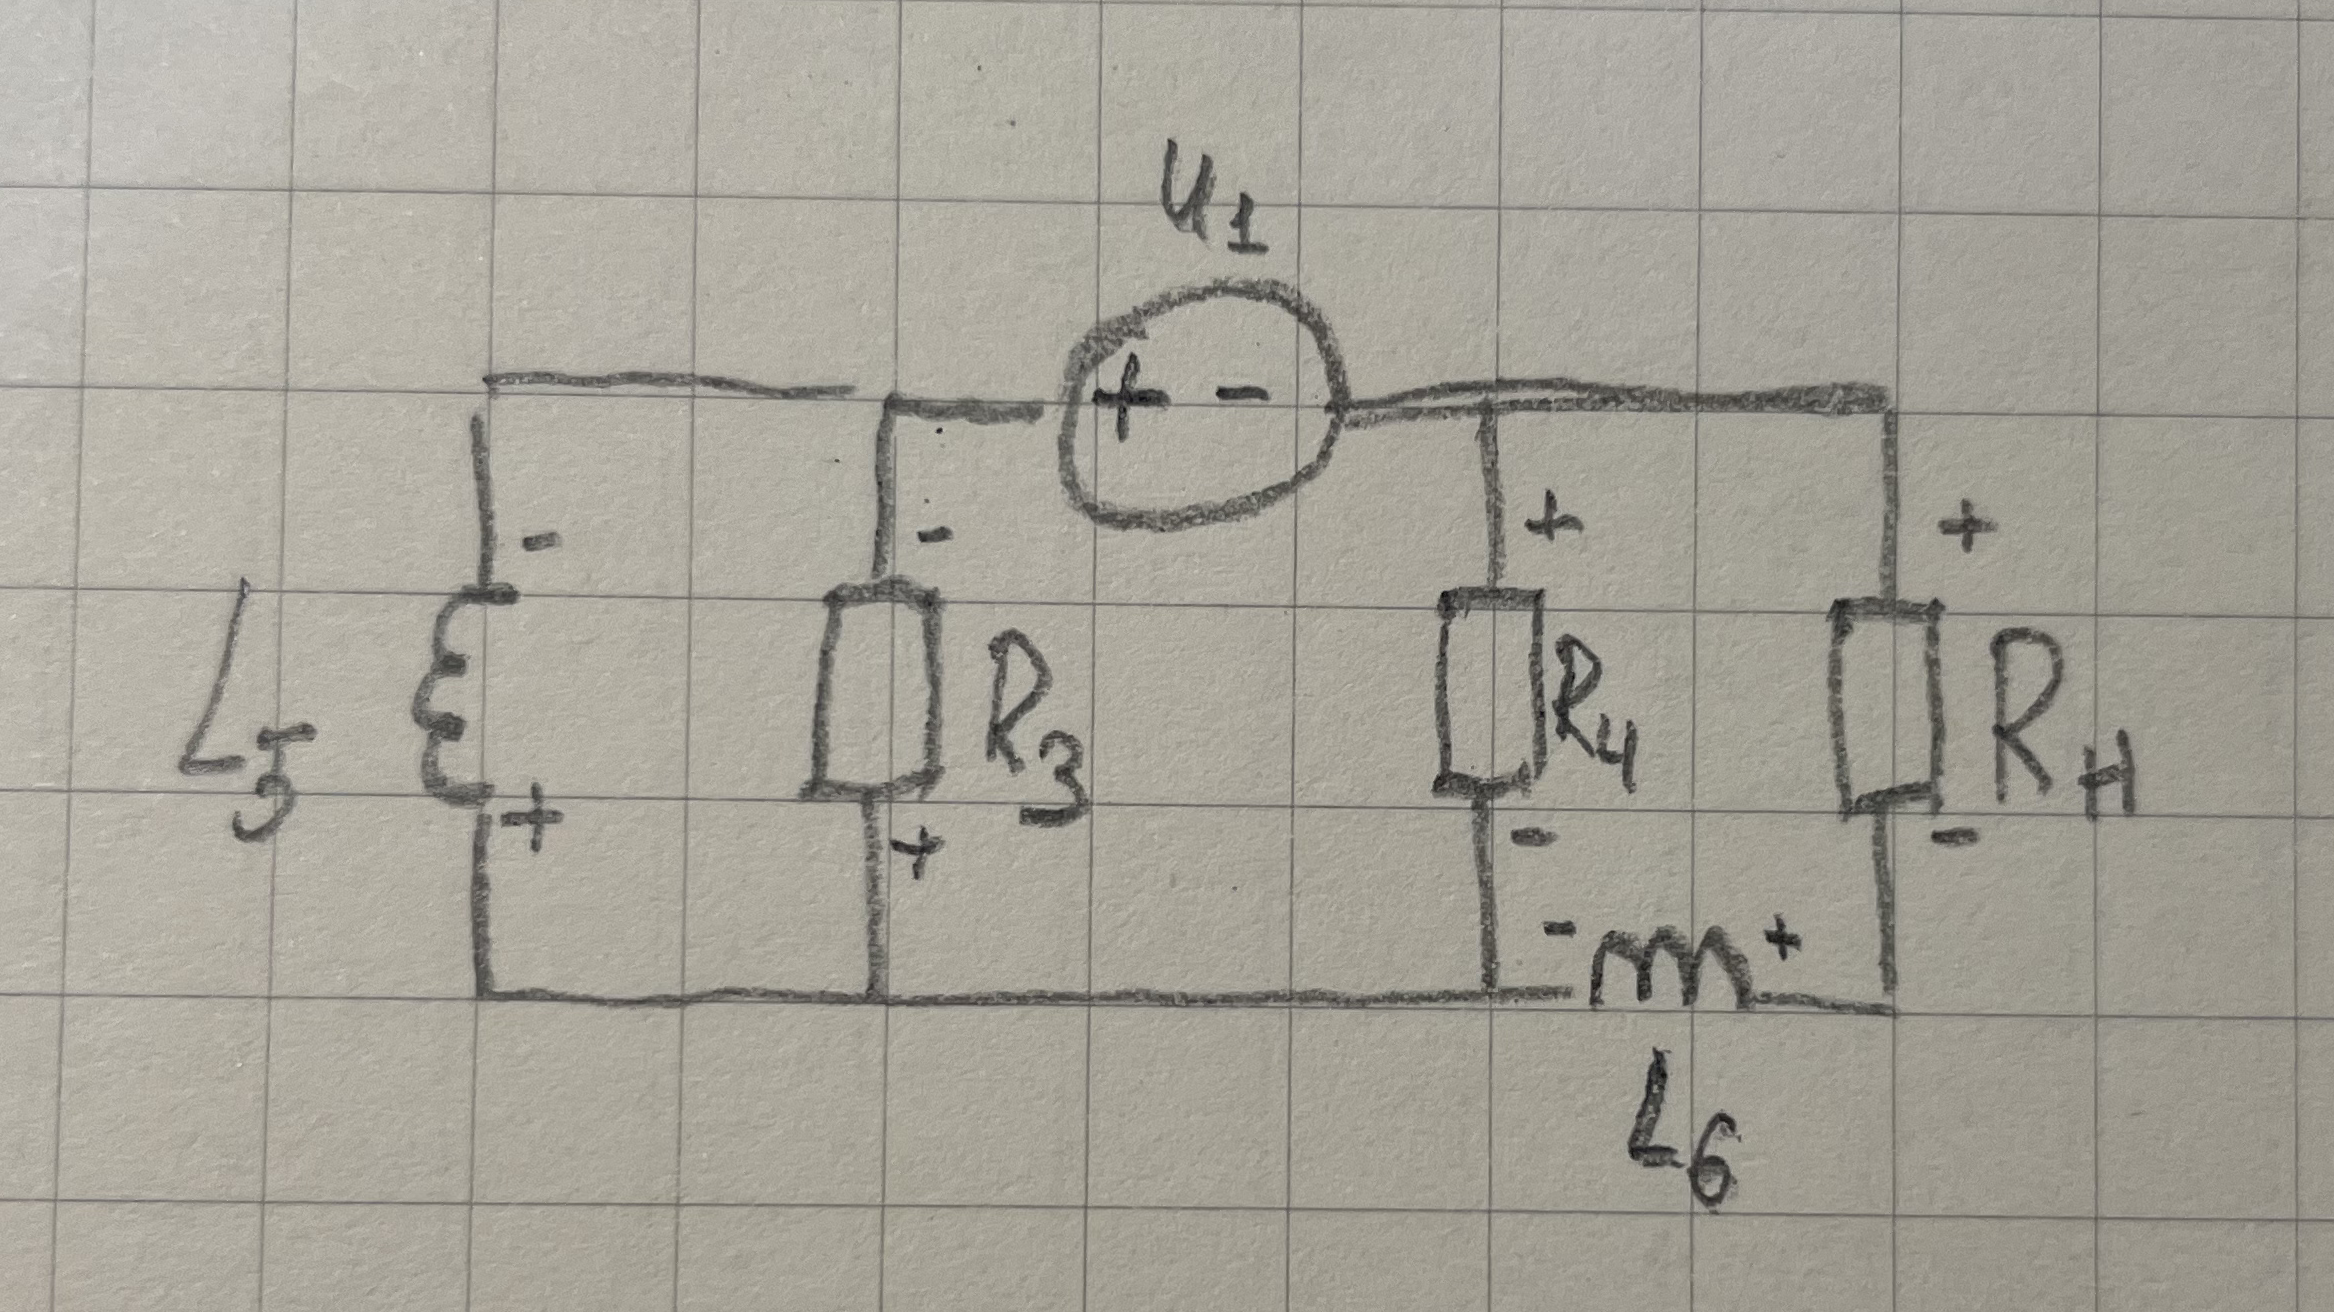 u1
+ -
- - + +
L5 R3 R4 RH
+ + - -
- +
L6